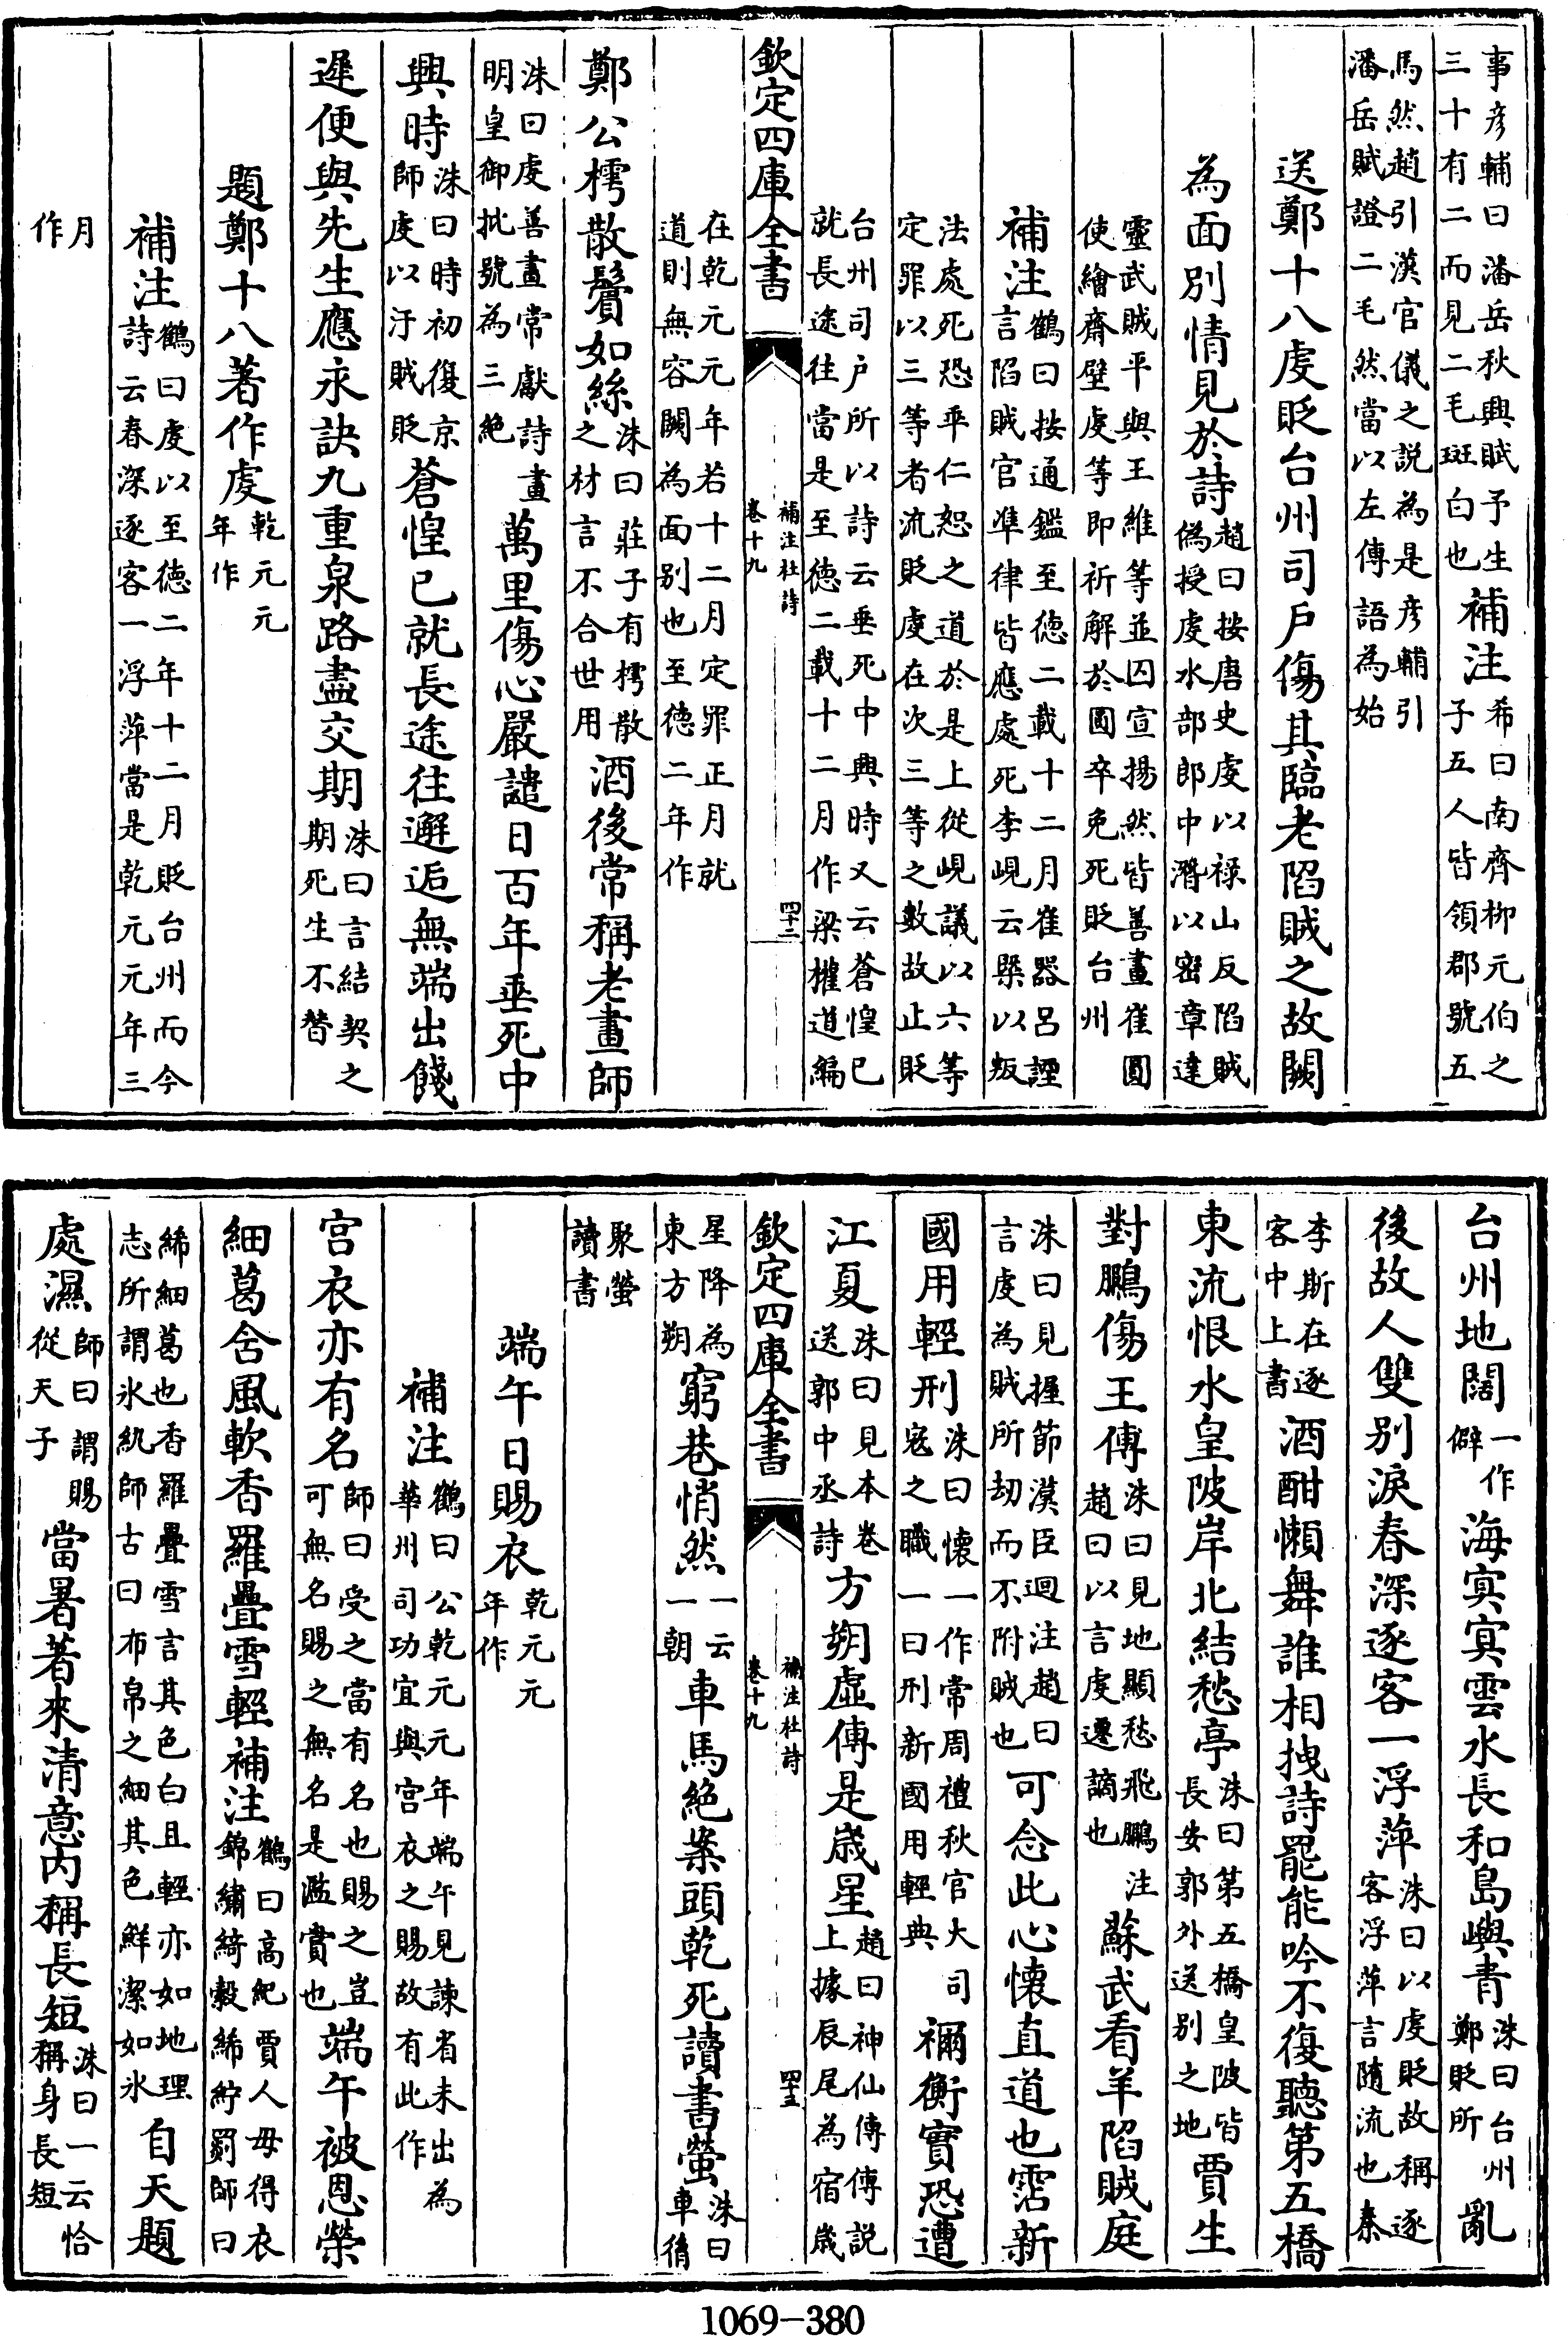 事彦輔曰潘岳秋興賦予生三十有二而見二毛斑白也補注希曰南齊柳元伯之子五人皆領郡號五
馬然趙引漢官儀之説為是彦輔引潘岳賦證二毛然當以左傳語為始
送鄭十八䖍貶台州司戶傷其臨老陷賊之故闕
為面別情見於詩趙曰按唐史䖍以禄山反陷賊偽授䖍水部郎中潛以密章達
靈武賊平與王維等並囚宣揚然皆善畫崔圓使繪齋壁䖍等即祈解於圓卒免死貶台州
補注鶴曰按通鑑至徳二載十二月崔器呂諲言陷賊官凖律皆應處死李峴云槩以叛
法處死恐乖仁恕之道於是上從峴議以六等定罪以三等者流貶䖍在次三等之數故止貶
台州司戶所以詩云垂死中興時又云蒼惶已就長途往當是至徳二載十二月作梁權道編
欽定四庫全書
補注杜詩
卷十九
四十二
在乾元元年若十二月定罪正月就道則無容闕為面别也至德二年作
鄭公樗散鬢如絲洙曰莊子有樗散之材言不合世用酒後常稱老畫師
洙曰䖍善畫常獻詩畫明皇御批號為三絶萬里傷心嚴譴日百年垂死中
興時洙曰時初復京師䖍以汙賊貶蒼惶已就長途往邂逅無端出餞
遲便與先生應永訣九重泉路盡交期洙曰言結契之期死生不替
題鄭十八著作䖍乾元元年作
補注鶴曰䖍以至徳二年十二月貶台州而今詩云春深逐客一浮萍當是乾元元年三
月作
台州地闊一作僻海㝠㝠雲水長和島嶼青洙曰台州鄭貶所亂
後故人雙别淚春深逐客一浮萍洙曰以䖍貶故稱逐客浮萍言隨流也秦
李斯在逐客中上書酒酣懶舞誰相拽詩罷能吟不復聽第五橋
東流恨水皇陂岸北結愁亭洙曰第五橋皇陂皆長安郭外送別之地賈生
對鵩傷王傅洙曰見地顯愁飛鵩注趙曰以言䖍遷謫也蘇武看羊陷賊庭
洙曰見握節漢臣迴注趙曰言䖍為賊所刼而不附賊也可念此心懷直道也霑新
國用輕刑洙曰懷一作常周禮秋官大司寇之職一曰刑新國用輕典禰衡實恐遭
江夏洙曰見本卷送郭中丞詩方朔虛傳是歲星趙曰神仙傳傳説上據辰尾為宿歲
欽定四庫全書
補注杜詩
卷十九
四十三
星降為東方朔窮巷悄然一云一朝車馬絶案頭乾死讀書螢洙曰車𦙍
聚螢讀書
端午日賜衣乾元元年作
補注鶴曰公乾元元年端午見諫省未出為華州司功宜與宫衣之賜故有此作
宫衣亦有名師曰受之當有名也賜之豈可無名賜之無名是濫賞也端午被恩榮
細葛含風軟香羅疊雪輕補注鶴曰高紀賈人毋得衣錦繡綺縠絺紵罽師曰
絺細葛也香羅疊雪言其色白且輕亦如地理志所謂氷紈師古曰布帛之細其色鮮潔如氷自天題
處濕師曰謂賜從天子當暑著來清意内稱長短洙曰一云恰稱身長短
1069-380